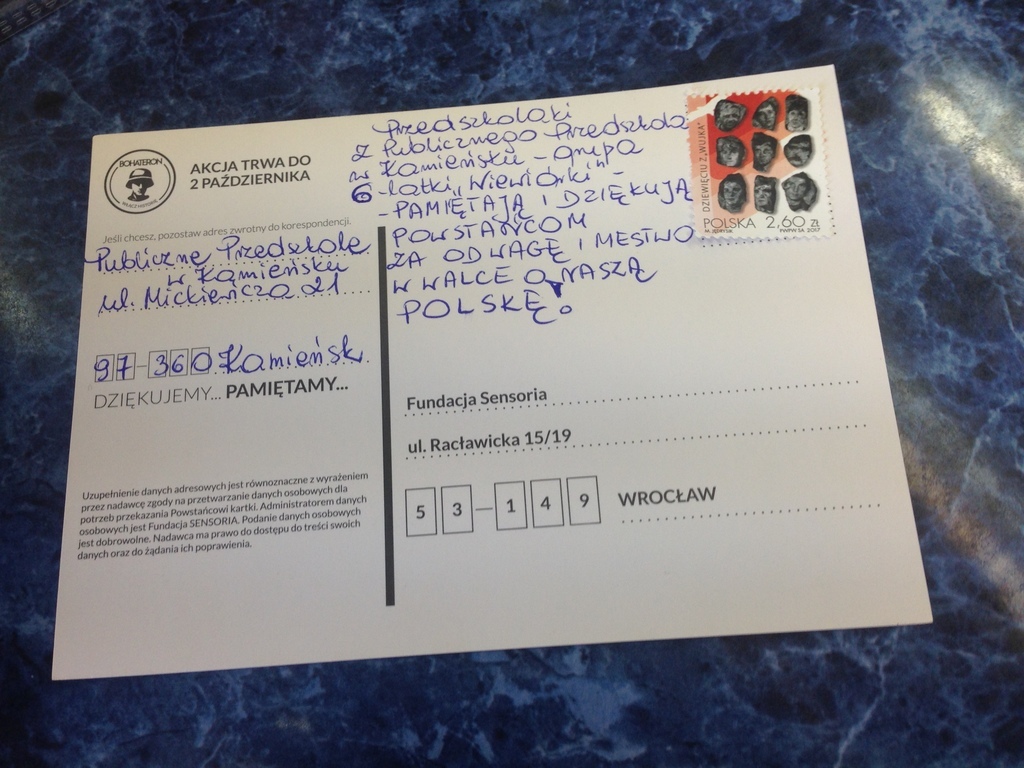 BOHATERON
AKCJA TRWA DO
2 PAŹDZIERNIKA
Jeśli chcesz, pozostaw adres zwrotny do korespondencji.
Publiczne Przedszkole
w Kamieńsku
ul. Mickiewicza 21
97-360 Kamieńsk.
DZIĘKUJEMY... PAMIĘTAMY...
Uzupełnienie danych adresowych jest równoznaczne z wyrażeniem
przez nadawcę zgody na przetwarzanie danych osobowych dla
potrzeb przekazania Powstańcowi kartki. Administratorem danych
osobowych jest Fundacja SENSORIA. Podanie danych osobowych
jest dobrowolne. Nadawca ma prawo do dostępu do treści swoich
danych oraz do żądania ich poprawienia.
Przedszkolaki
z Publicznego Przedszkola
w Kamieńsku - grupa
6-latki "Wiewiórki" -
- PAMIĘTAJĄ I DZIĘKUJĄ
POWSTAŃCOM
ZA ODWAGĘ I MĘSTWO
W WALCE O NASZĄ
POLSKĘ!
DZIEWIĘCIU Z „WUJKA"
POLSKA 2,60 ZŁ
PWPW SA 2017
Fundacja Sensoria
ul. Racławicka 15/19
53-149 WROCŁAW